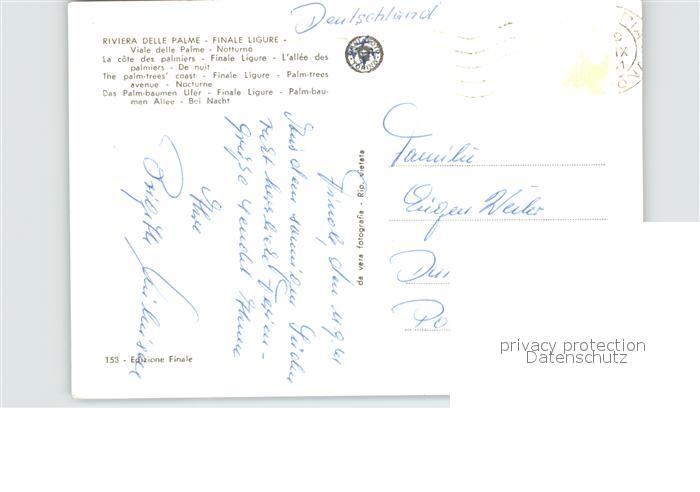 Deutschland
RIVIERA DELLE PALME - FINALE LIGURE -
Viale delle Palme - Notturno
La côte des palmiers - Finale Ligure - L'allée des
palmiers - De nuit
The palm-trees' coast - Finale Ligure - Palm-trees
avenue - Nocturne
Das Palm-baumen Ufer - Finale Ligure - Palm-bau-
men Allee - Bei Nacht
den 11.9.61
Aus dem sonnigen Süden
recht herzliche Ferien-
grüße sendet Ihnen
Ihre
Brigitte
da vera fotografia - Rip. vietata
Familie
Eugen Weiler
153 - Edizione Finale
privacy protection
Datenschutz